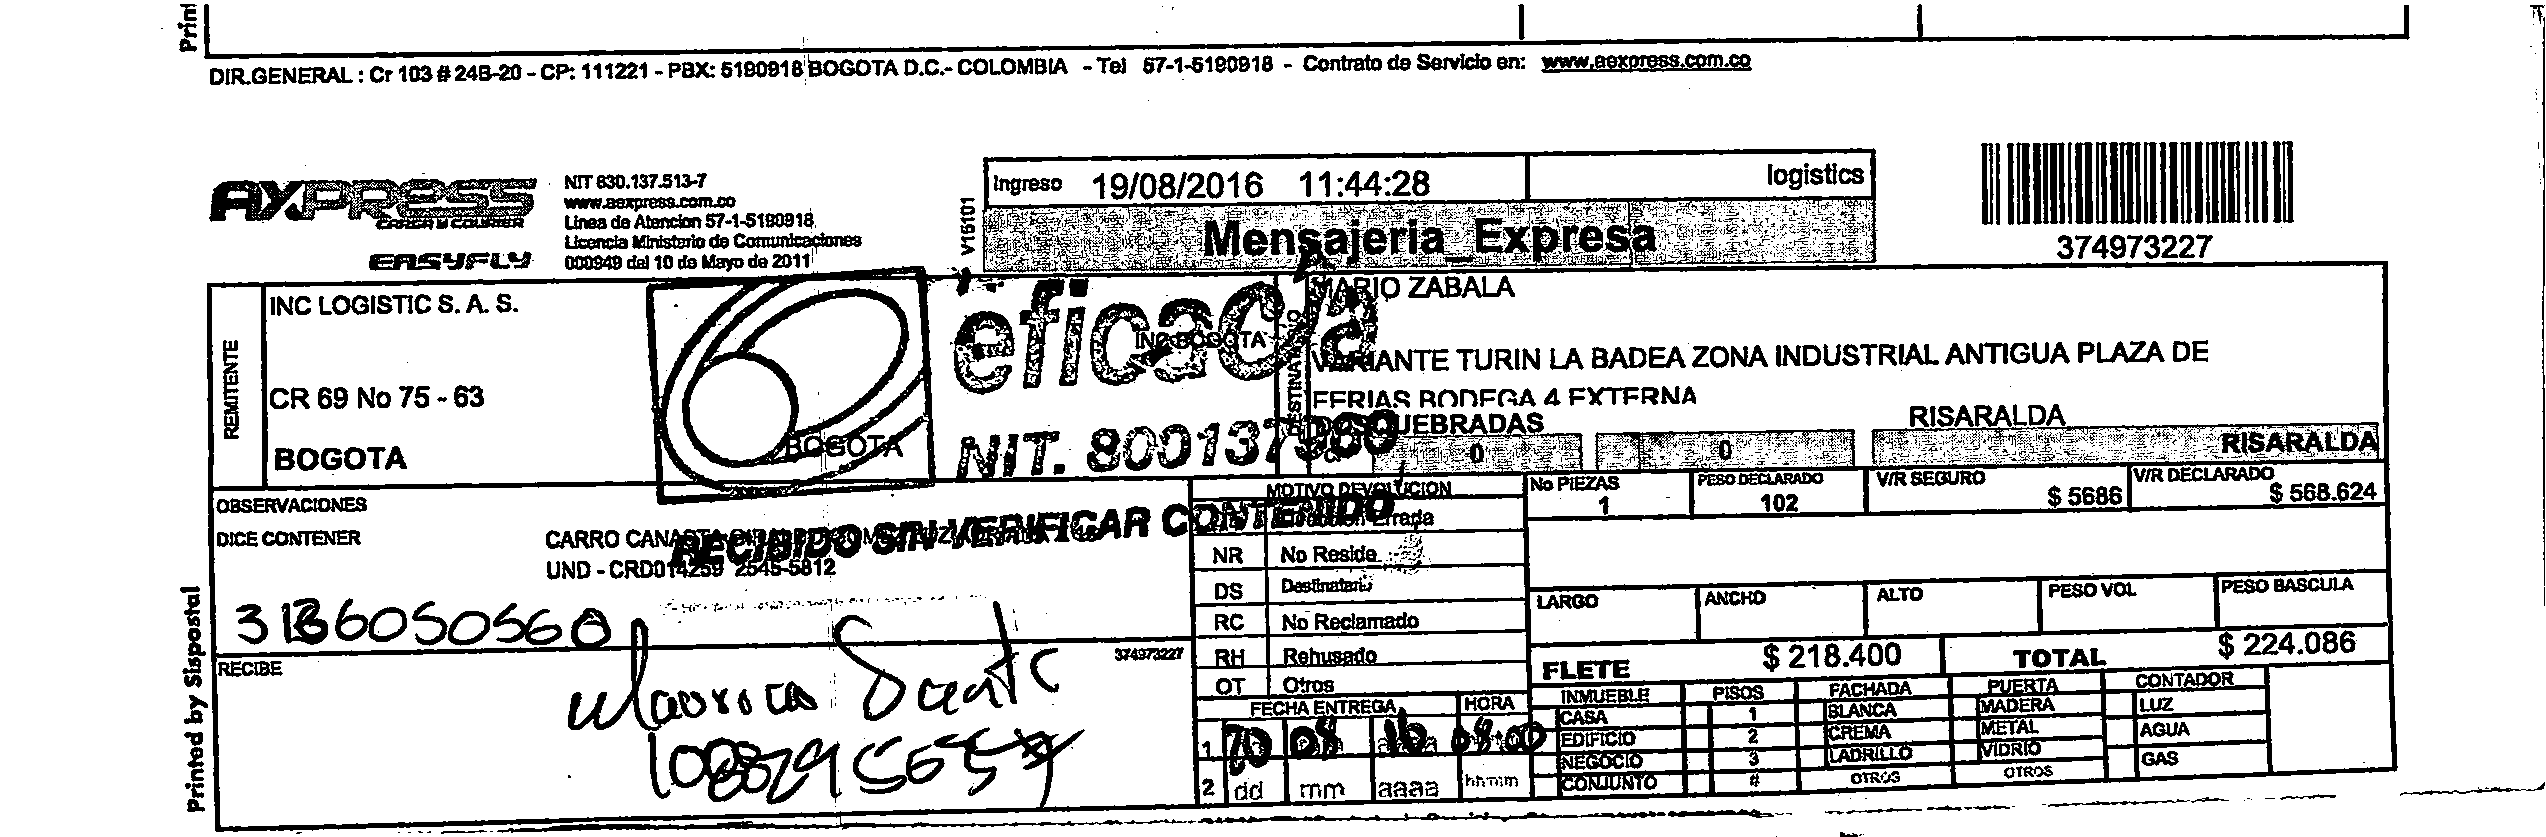 DIR.GENERAL : Cr 103 # 24B-20 - CP: 111221 - PBX: 5190918 BOGOTA D.C.- COLOMBIA - Tel 57-1-5190918 - Contrato de Servicio en: www.aexpress.com.co
AXPRESS
CARGA Y COURIER
EASYFLY
NIT 830.137.513-7
www.aexpress.com.co
Linea de Atencion 57-1-5190918
Licencia Ministerio de Comunicaciones
000949 del 10 de Mayo de 2011
V15101
Ingreso 19/08/2016 11:44:28 logistics
Mensajeria_Expresa
374973227
REMITENTE
INC LOGISTIC S. A. S.
CR 69 No 75 - 63
BOGOTA
BOGOTA
eficacia
NIT. 800137960
RECIBIDO SIN VERIFICAR CONTENIDO
INC BOGOTA
DESTINATARIO
MARIO ZABALA
VARIANTE TURIN LA BADEA ZONA INDUSTRIAL ANTIGUA PLAZA DE
FERIAS BODEGA 4 EXTERNA
DOSQUEBRADAS RISARALDA
0 0 RISARALDA
OBSERVACIONES
DICE CONTENER CARRO CANASTA
UND - CRD014259 2545-5812
3136050560
RECIBE
374973227
MOTIVO DEVOLUCION
Direccion Errada
NR No Reside
DS Destinatario
RC No Reclamado
RH Rehusado
OT Otros
FECHA ENTREGA HORA
1 20 08 16 08:00
2 dd mm aaaa hh:mm
No PIEZAS 1
PESO DECLARADO 102
V/R SEGURO $ 5686
V/R DECLARADO $ 568.624
LARGO ANCHO ALTO PESO VOL PESO BASCULA
FLETE $ 218.400 TOTAL $ 224.086
INMUEBLE PISOS FACHADA PUERTA CONTADOR
CASA 1 BLANCA MADERA LUZ
EDIFICIO 2 CREMA METAL AGUA
NEGOCIO 3 LADRILLO VIDRIO GAS
CONJUNTO # OTROS OTROS
Printed by Sispostal